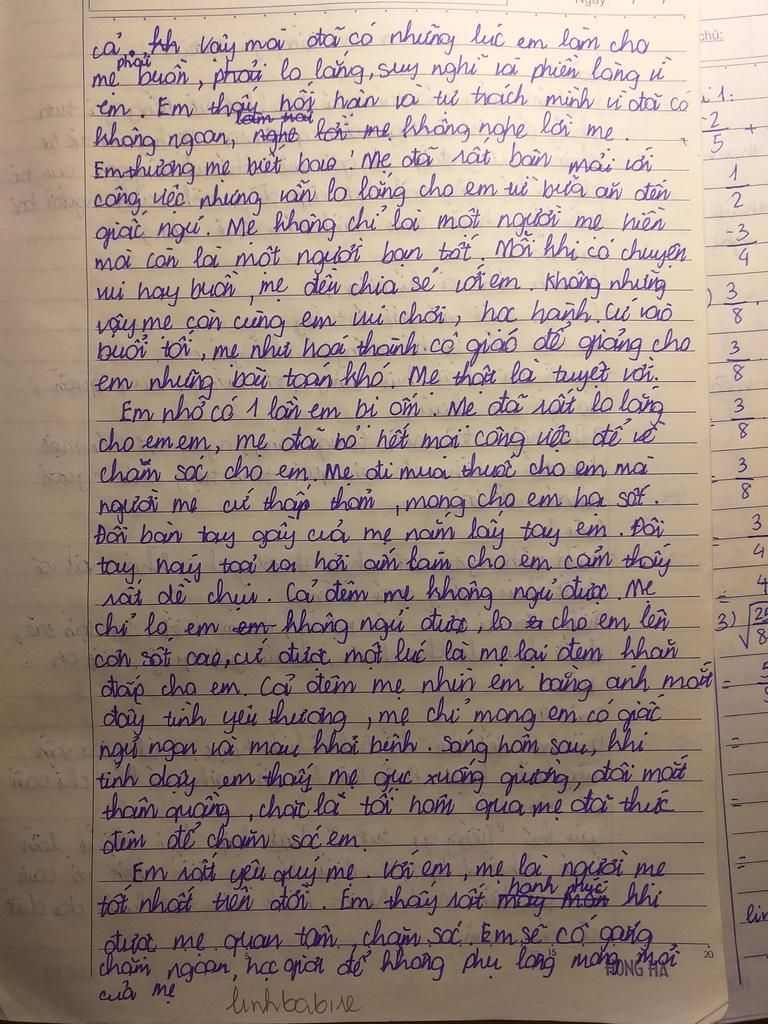 cả. Ấh vậy mà đã có những lúc em làm cho
mẹ phải buồn, phải lo lắng, suy nghĩ và phiền lòng vì
em. Em thấy hối hận và tự trách mình vì đã có
không ngoan, nghe lời mẹ không nghe lời mẹ.
Em thương mẹ biết bao! Mẹ đã rất bận mải với
công việc nhưng vẫn lo lắng cho em từ bữa ăn đến
giấc ngủ. Mẹ không chỉ là một người mẹ hiền
mà còn là một người bạn tốt. Mỗi khi có chuyện
vui hay buồn, mẹ đến chia sẻ với em. Không những
vậy mẹ còn cùng em vui chơi, học hành. Cứ vào
buổi tối, mẹ như hoá thành cô giáo để giảng cho
em những bài toán khó. Mẹ thật là tuyệt vời.
Em nhớ có 1 lần em bị ốm. Mẹ đã rất lo lắng
cho em em, mẹ đã bỏ hết mọi công việc để về
chăm sóc cho em. Mẹ đi mua thuốc cho em mà
người mẹ cứ thấp thỏm, mong cho em hạ sốt.
Đôi bàn tay gầy của mẹ nắm lấy tay em. Đôi
tay này toả ra hơi ấm làm cho em cảm thấy
rất dễ chịu. Cả đêm mẹ không ngủ được. Mẹ
chỉ lo em em không ngủ được, lo cho em lên
cơn sốt cao, cứ được một lúc là mẹ lại đem khăn
đắp cho em. Cả đêm mẹ nhìn em bằng ánh mắt
đầy tình yêu thương, mẹ chỉ mong em có giấc
ngủ ngon và mau khỏi bệnh. Sáng hôm sau, khi
tỉnh dậy em thấy mẹ gục xuống giường, đôi mắt
thâm quầng, chắc là tối hôm qua mẹ đã thức
đêm để chăm sóc em.
Em rất yêu quý mẹ. Với em, mẹ là người mẹ
tốt nhất trên đời. Em thấy rất may mắn hạnh phúc khi
được mẹ quan tâm, chăm sóc. Em sẽ cố gắng
chăm ngoan, học giỏi để không phụ lòng mong mỏi
của mẹ
linhbabire
HONG HA
15
20
chú:
1:
2/5 +
1/2
-3/4
) 3/8
3/8
3/8
= 3/8
= 3/4
= 4
3)
=
=
=
=